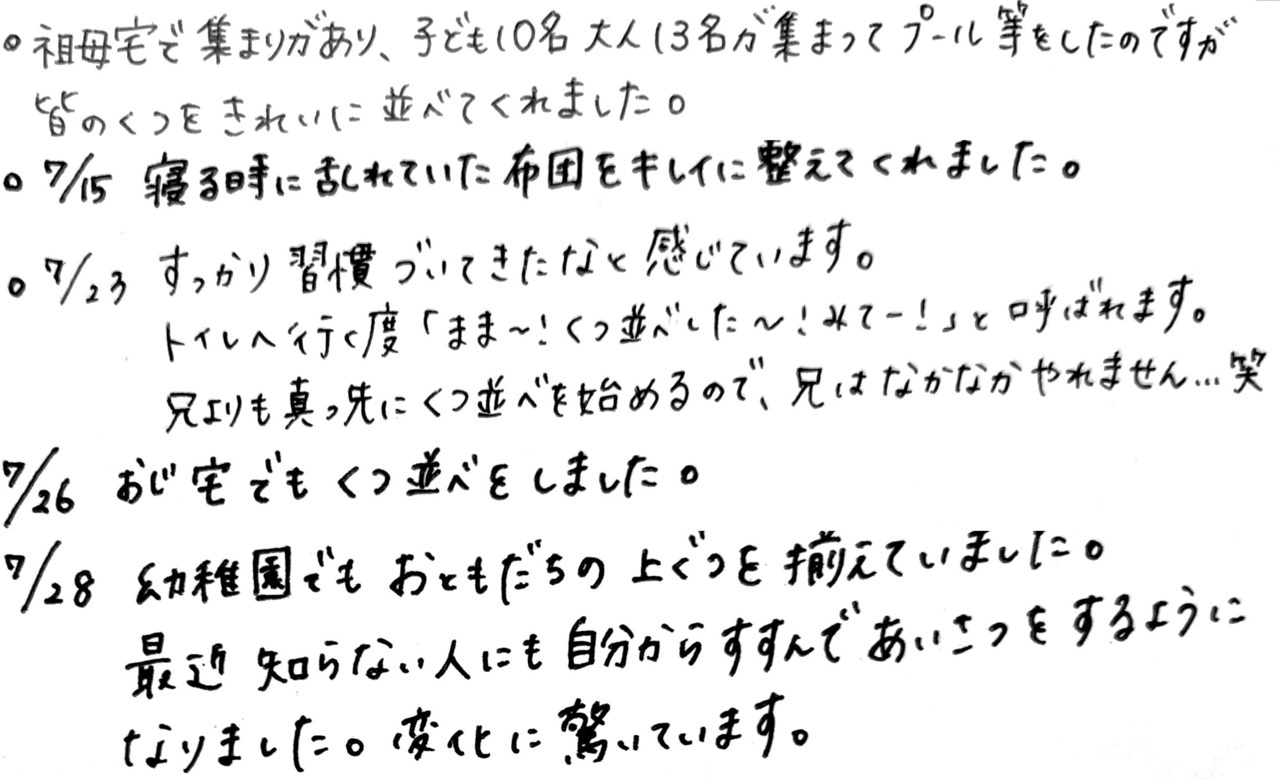 ○ 祖母宅で集まりがあり、子ども10名 大人13名が集まってプール等をしたのですが
皆のくつをきれいに並べてくれました。
○ 7/15 寝る時に乱れていた布団をキレイに整えてくれました。
○ 7/23 すっかり習慣づいてきたなと感じています。
トイレへ行く度「まま〜!くつ並べした〜!みてー!」と呼ばれます。
兄よりも真っ先にくつ並べを始めるので、兄はなかなかやれません…笑
7/26 おじ宅でもくつ並べをしました。
7/28 幼稚園でもおともだちの上ぐつを揃えていました。
最近知らない人にも自分からすすんであいさつをするように
なりました。変化に驚いています。